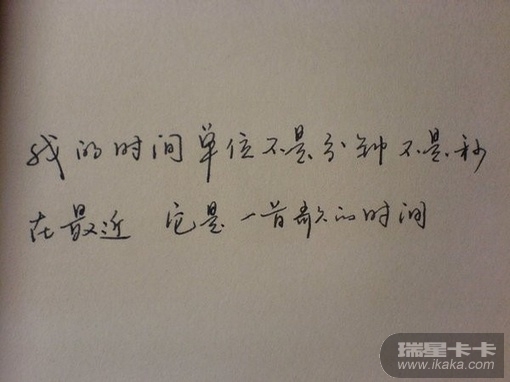 我的时间单位不是分钟不是秒
在最近 它是一首歌的时间
瑞星卡卡
www.ikaka.com